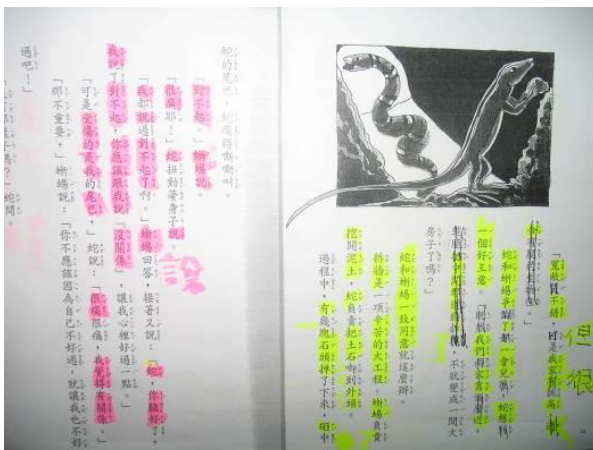 「寬敞是不錯,可是我家有挑高
一個好主意。「咱們我們兩家靠這麼近,
不就變成一間大
房子了嗎?」
蛇和蜥蜴一致同意就這麼辦。
拆牆是一項辛苦的大工程。蜥蜴負責
挖開泥土,蛇負責把土石吻到外頭。
過程中,有幾塊石頭掉了下來,砸中
但很
蛇的尾巴,蛇痛得嘶嘶叫。
「對不起。」蜥蜴說。
「很痛耶!」蛇扭動著身子說。
「我都說過對不起了啊。」蜥蜴回答,接著又說:「蛇,你聽好了,
我說了對不起,你應該跟我說『沒關係』,讓我心裡好過一點。」
「可是受傷的是我的尾巴,」蛇說:「很痛很痛,我覺得有關係。」
「那不重要,」蜥蜴說:「你不應該因為自己不好過,就讓我也不好
過吧!」
說